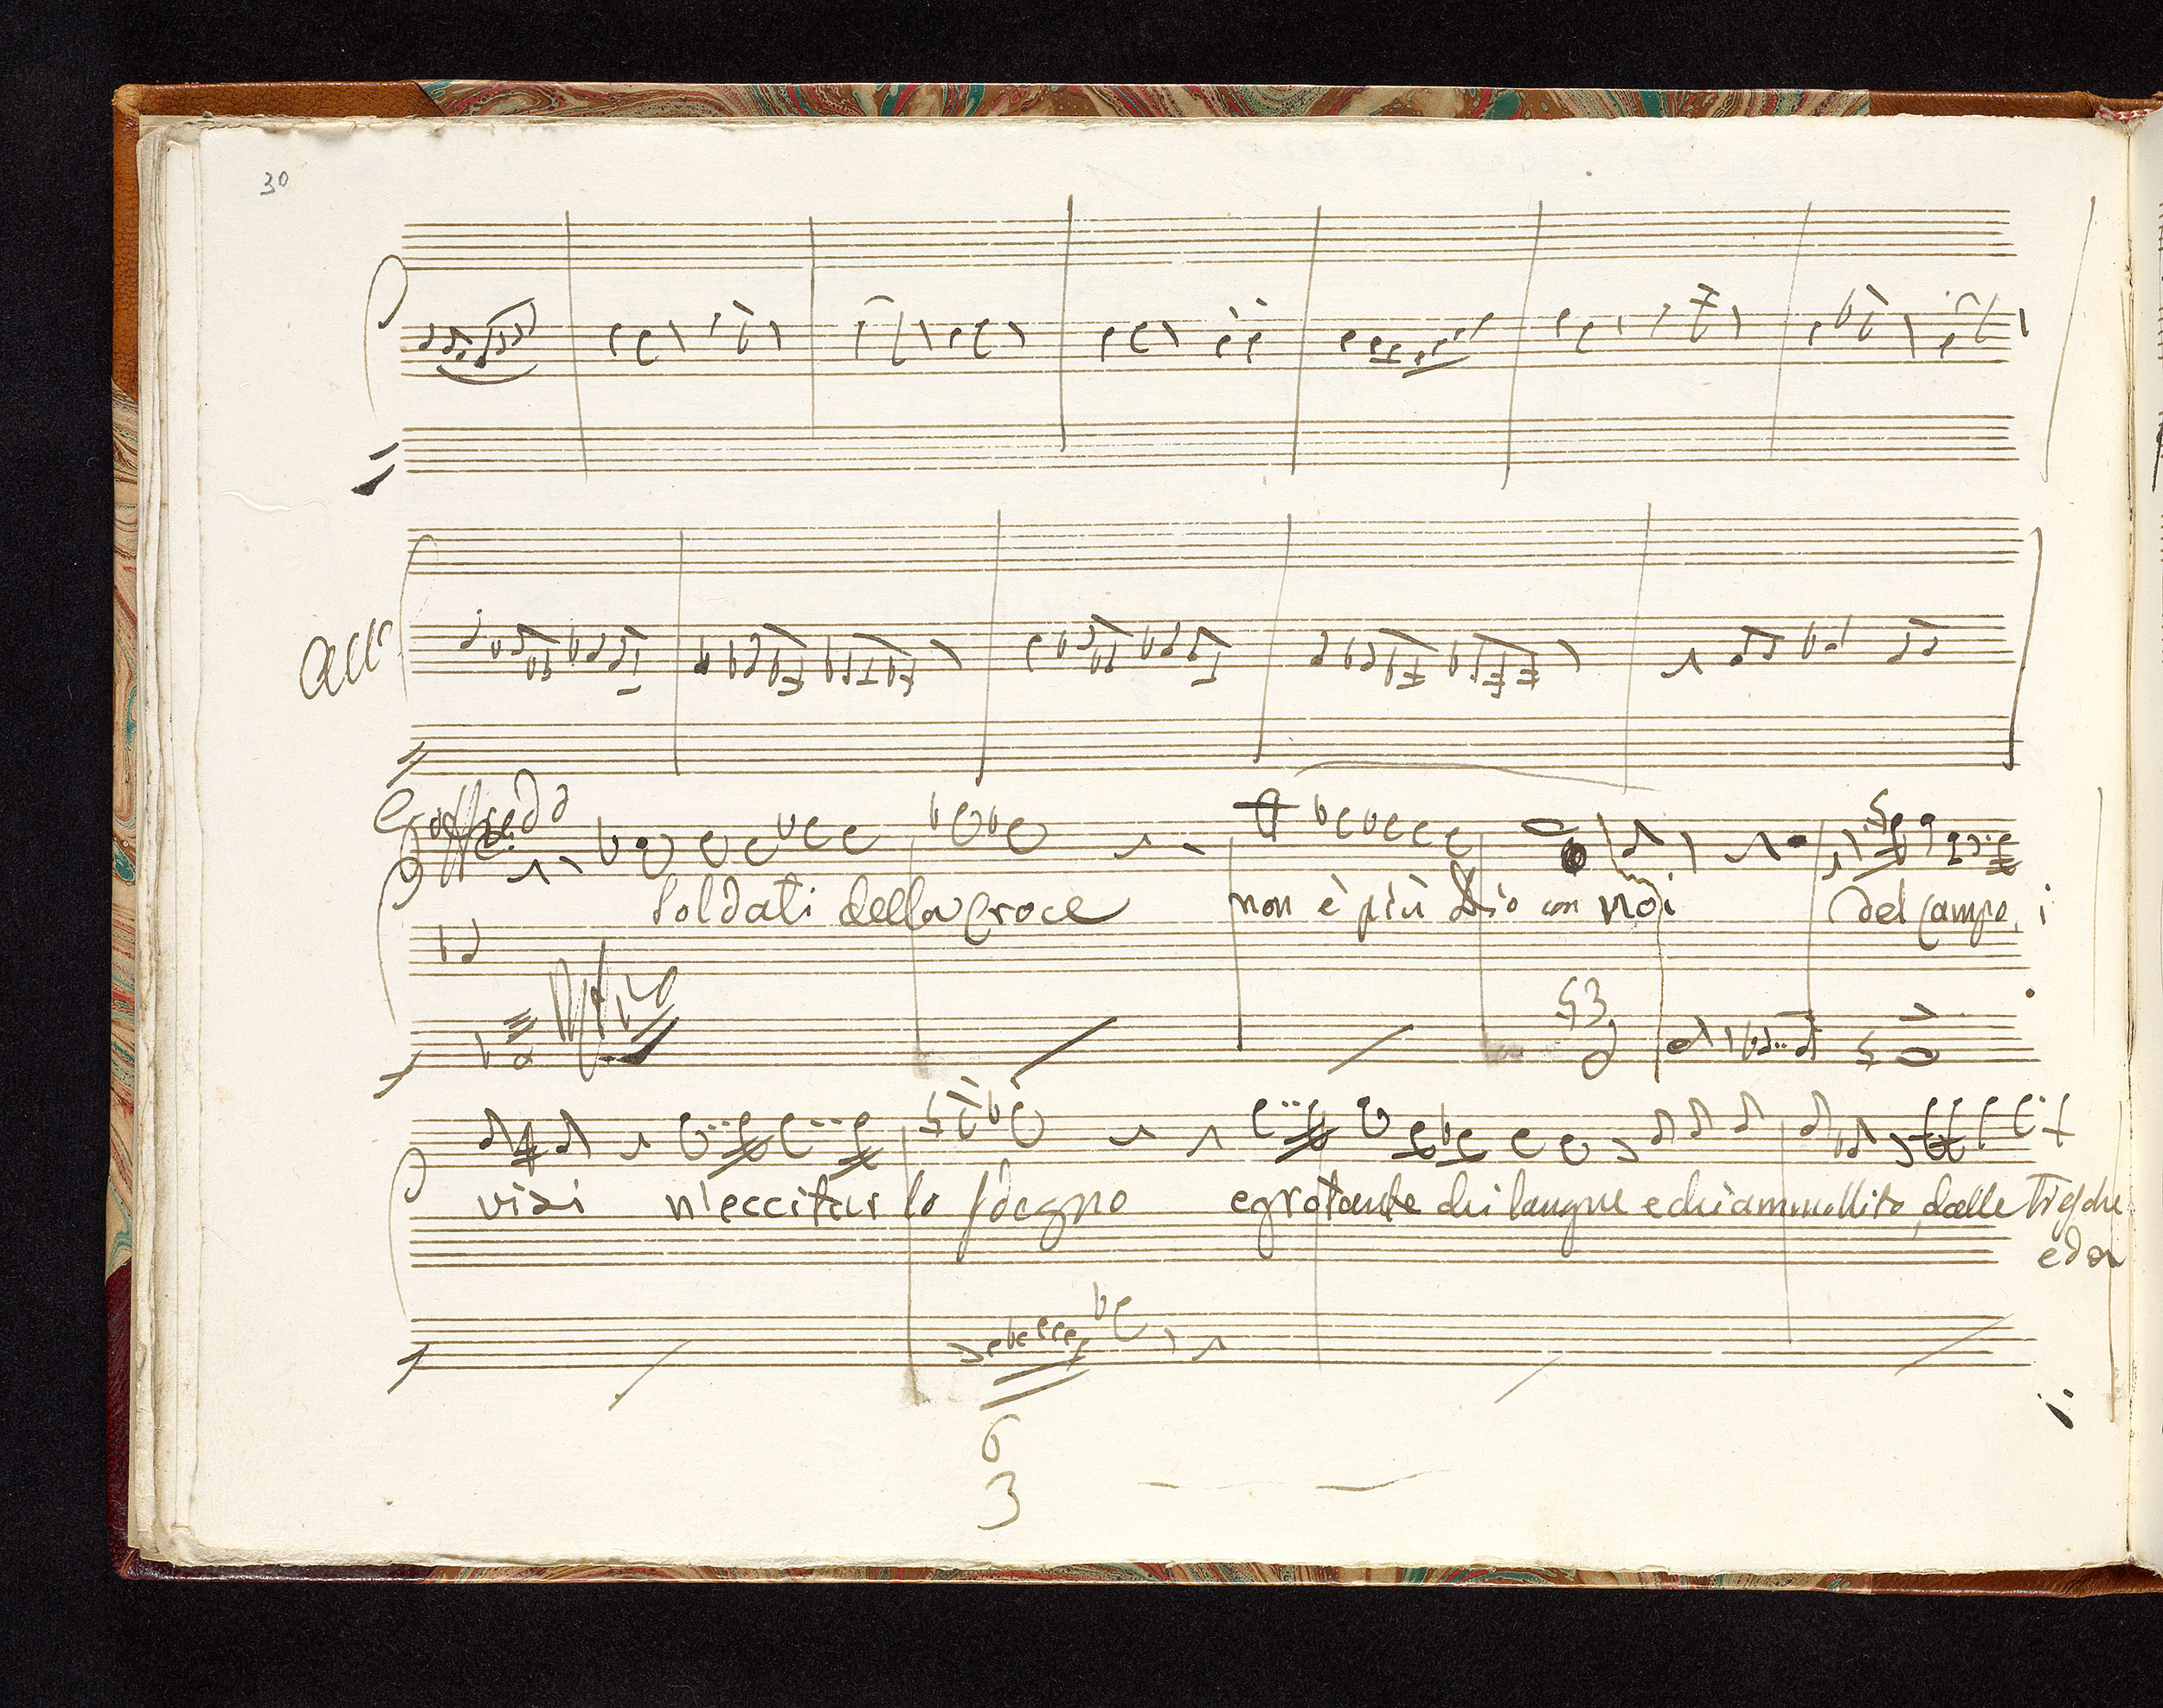 30
All°
Goffredo
Soldati della Croce non è più Dio con noi del Campo i
53
vizi n'eccitar lo sdegno egrotante chi langue e chi ammollito, dalle tresche
e da
6
3